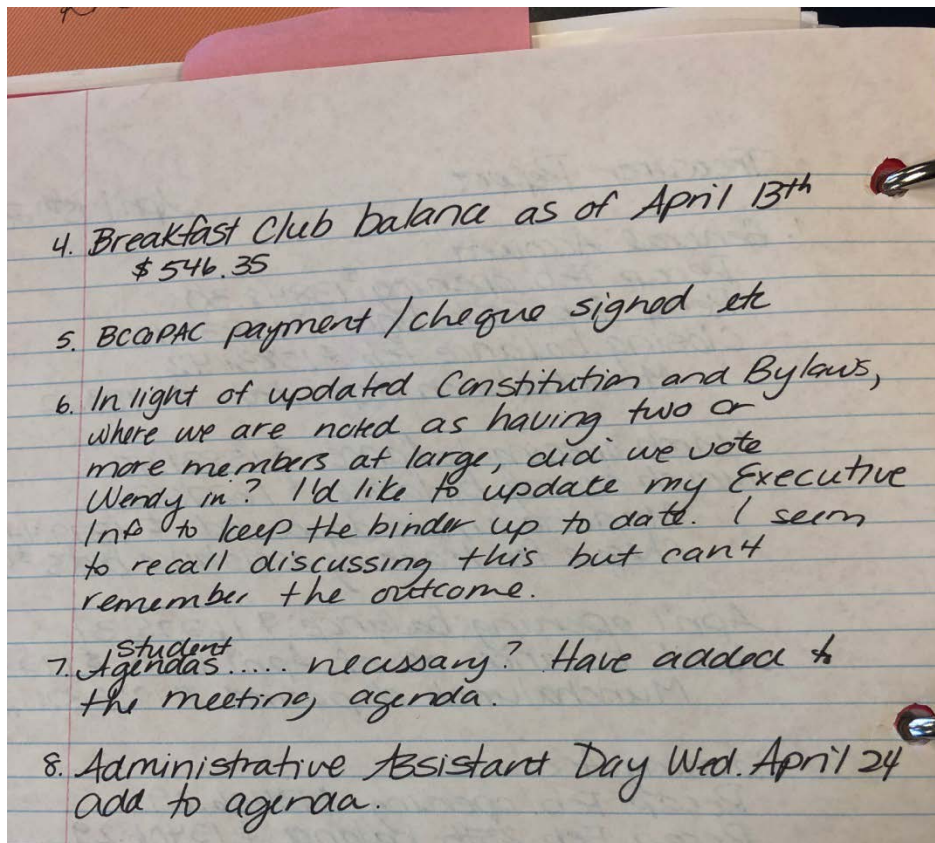 4. Breakfast Club balance as of April 13th
$546.35
5. BCCOPAC payment / cheque signed etc
6. In light of updated Constitution and Bylaws,
where we are noted as having two or
more members at large, did we vote
Wendy in? I'd like to update my Executive
Info to keep the binder up to date. I seem
to recall discussing this but can't
remember the outcome.
Student
7. Agendas.... necessary? Have added to
the meeting agenda.
8. Administrative Assistant Day Wed. April 24
add to agenda.